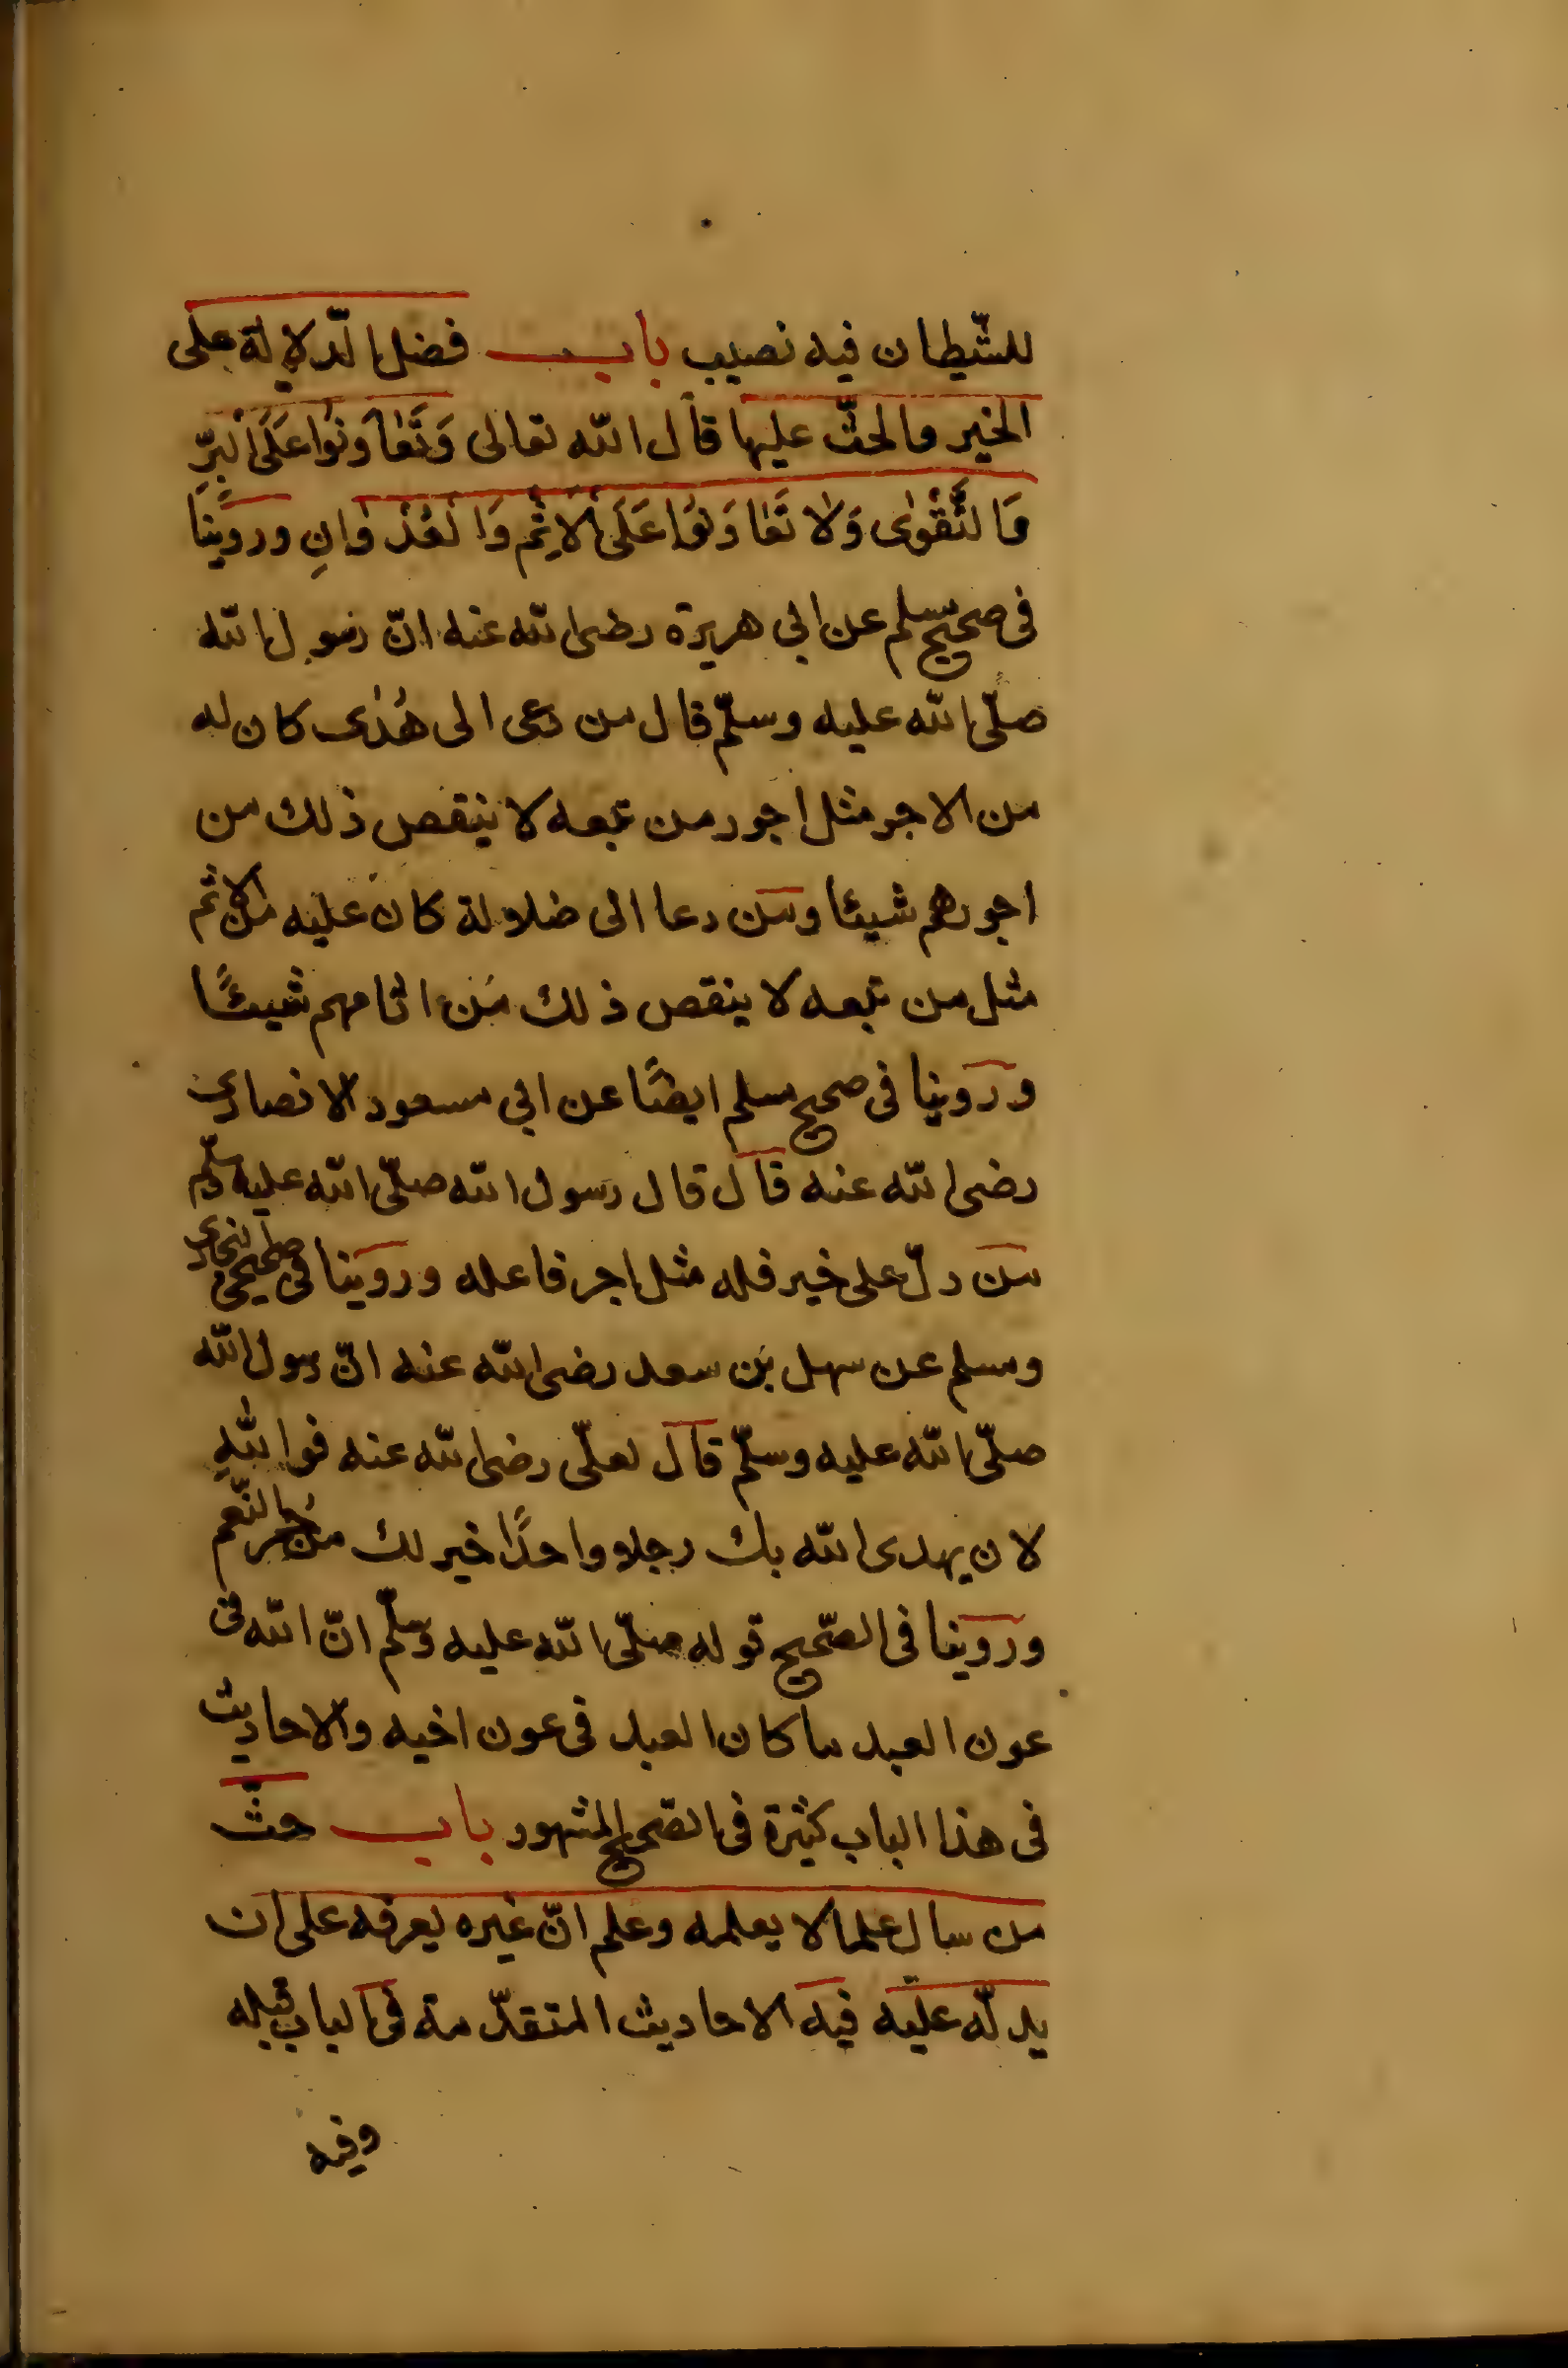 للشّيطان فيه نصيب باب فضل الدّلالة على
الخير والحثّ عليها قال الله تعالى وَتَعَاوَنُوا عَلَى الْبِرِّ
وَالتَّقْوٰى وَلَا تَعَاوَنُوا عَلَى الْاِثْمِ وَالْعُدْوَانِ وروينا
فى صحيح مسلم عن ابى هريرة رضى الله عنه انّ رسول الله
صلّى الله عليه وسلّم قال من دعى الى هُدًى كان له
من الاجر مثل اجور من تبعه لا ينقص ذلك من
اجورهم شيئا ومن دعا الى ضلالة كان عليه من الاثم
مثل من تبعه لا ينقص ذلك من اثامهم شيئًا
وروينا فى صحيح مسلم ايضًا عن ابى مسعود الانصارى
رضى الله عنه قال قال رسول الله صلّى الله عليه وسلّم
من دلّ على خير فله مثل اجر فاعله وروينا فى صحيحى البخارى
ومسلم عن سهل بن سعد رضى الله عنه انّ رسول الله
صلّى الله عليه وسلّم قال لعلّى رضى الله عنه فوالله
لان يهدى الله بك رجلا واحدًا خير لك من حمر النّعم
وروينا فى الصّحيح قوله صلّى الله عليه وسلّم انّ الله فى
عون العبد ما كان العبد فى عون اخيه والاحاديث
فى هذا الباب كثيرة فى الصّحيح المشهور باب حثّ
من سال علما لا يعلمه وعلم انّ غيره يعرفه على ان
يدلّه عليه فيه الاحاديث المتقدّمة فى الباب قبله
وفيه